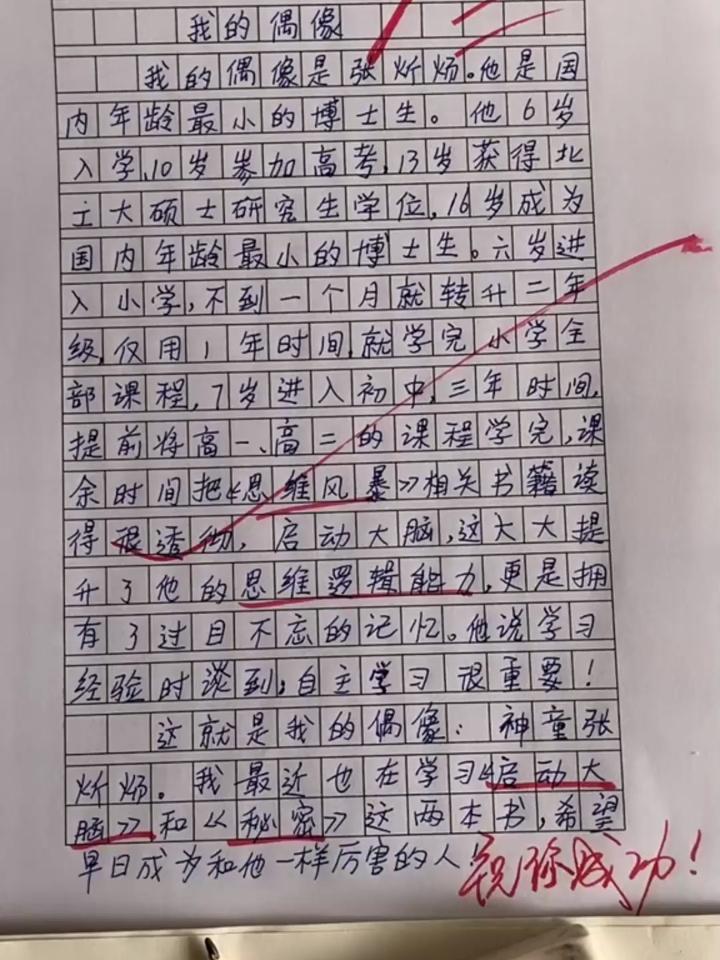 我的偶像
我的偶像是张炘炀。他是国
内年龄最小的博士生。他6岁
入学,10岁参加高考,13岁获得北
工大硕士研究生学位,16岁成为
国内年龄最小的博士生。六岁进
入小学,不到一个月就转升二年
级,仅用1年时间,就学完小学全
部课程,7岁进入初中,三年时间,
提前将高一、高二的课程学完,课
余时间把《思维风暴》相关书籍读
得很透彻,启动大脑,这大大提
升了他的思维逻辑能力,更是拥
有了过目不忘的记忆。他说学习
经验时谈到:自主学习很重要!
这就是我的偶像:神童张
炘炀。我最近也在学习《启动大
脑》和《秘密》这两本书,希望
早日成为和他一样厉害的人!
祝你成功!